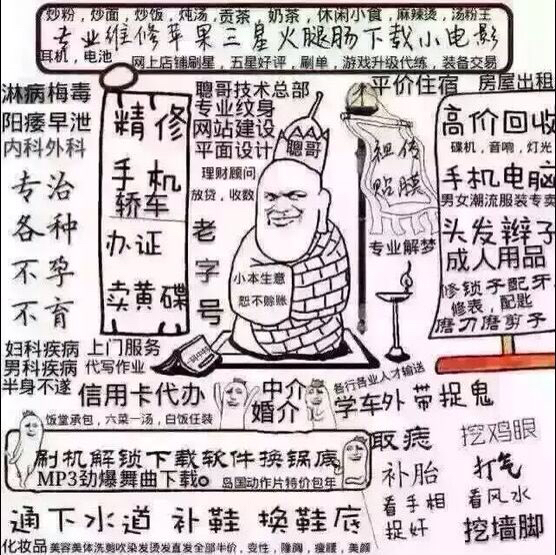 炒粉，炒面，炒饭，炖汤，贡茶，奶茶，休闲小食，麻辣烫，汤粉王
专业维修苹果三星火腿肠下载小电影
耳机，电池
网上店铺刷星，五星好评，刷单，游戏升级代练，装备交易
淋病梅毒
阳痿早泄
内科外科
专治
各种
不孕
不育
妇科疾病
男科疾病
半身不遂
精修
手机
轿车
办证
卖黄碟
上门服务
代写作业
聪哥技术总部
专业纹身
网站建设
平面设计
理财顾问
放贷，收数
老字号
聪哥
小本生意
恕不赊账
平价住宿
房屋出租
祖传
贴膜
专业解梦
高价回收
碟机，音响，灯光
手机电脑
男女潮流服装专卖
头发辫子
成人用品
修锁子配牙
修表，配匙
磨刀磨剪子
信用卡代办
饭堂承包，六菜一汤，白饭任装
中介
婚介
各行各业人才输送
学车外带捉鬼
刷机解锁下载软件换锅底
MP3劲爆舞曲下载。
岛国动作片特价包年
取痣
补胎
看手相
捉奸
挖鸡眼
打气
看风水
挖墙脚
通下水道 补鞋 换鞋底
化妆品
美容美体洗剪吹染发烫发直发全部半价，变性，隆胸，瘦腰，美颜